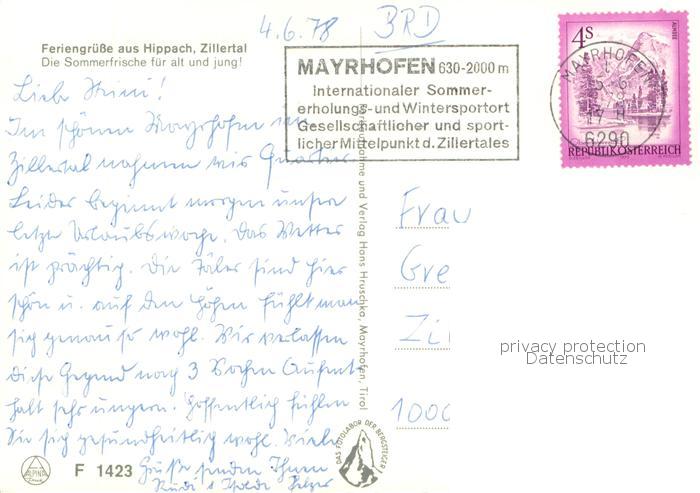 4.6.78
BRD
Feriengrüße aus Hippach, Zillertal
Die Sommerfrische für alt und jung!
MAYRHOFEN 630-2000 m
Internationaler Sommer-
erholungs- und Wintersportort
Gesellschaftlicher und sport-
licher Mittelpunkt d. Zillertales
4s
ALMSEE
MAYRHOFEN
6290
REPUBLIK ÖSTERREICH
Liebe Mimi!
Im schönen Mayrhofen im
Zillertal nahmen wir Quartier
Leider beginnt morgen unsere
letzte Urlaubswoche. Das Wetter
ist prächtig. Die Täler sind hier
schön u. auf den Höhen fühlt man
sich genau so wohl. Wir verlassen
diese Gegend nach 3 Wochen Aufent
halt sehr ungern. Hoffentlich fühlen
Sie sich gesundheitlich wohl. Viele
Grüße senden Ihnen
Rudi
Frau
Gre
Zi
1000
Verlag Hans Hruschka, Mayrhofen, Tirol
DAS FOTOLABOR DER BERGSTEIGER!
ALPINA
F 1423
privacy protection
Datenschutz